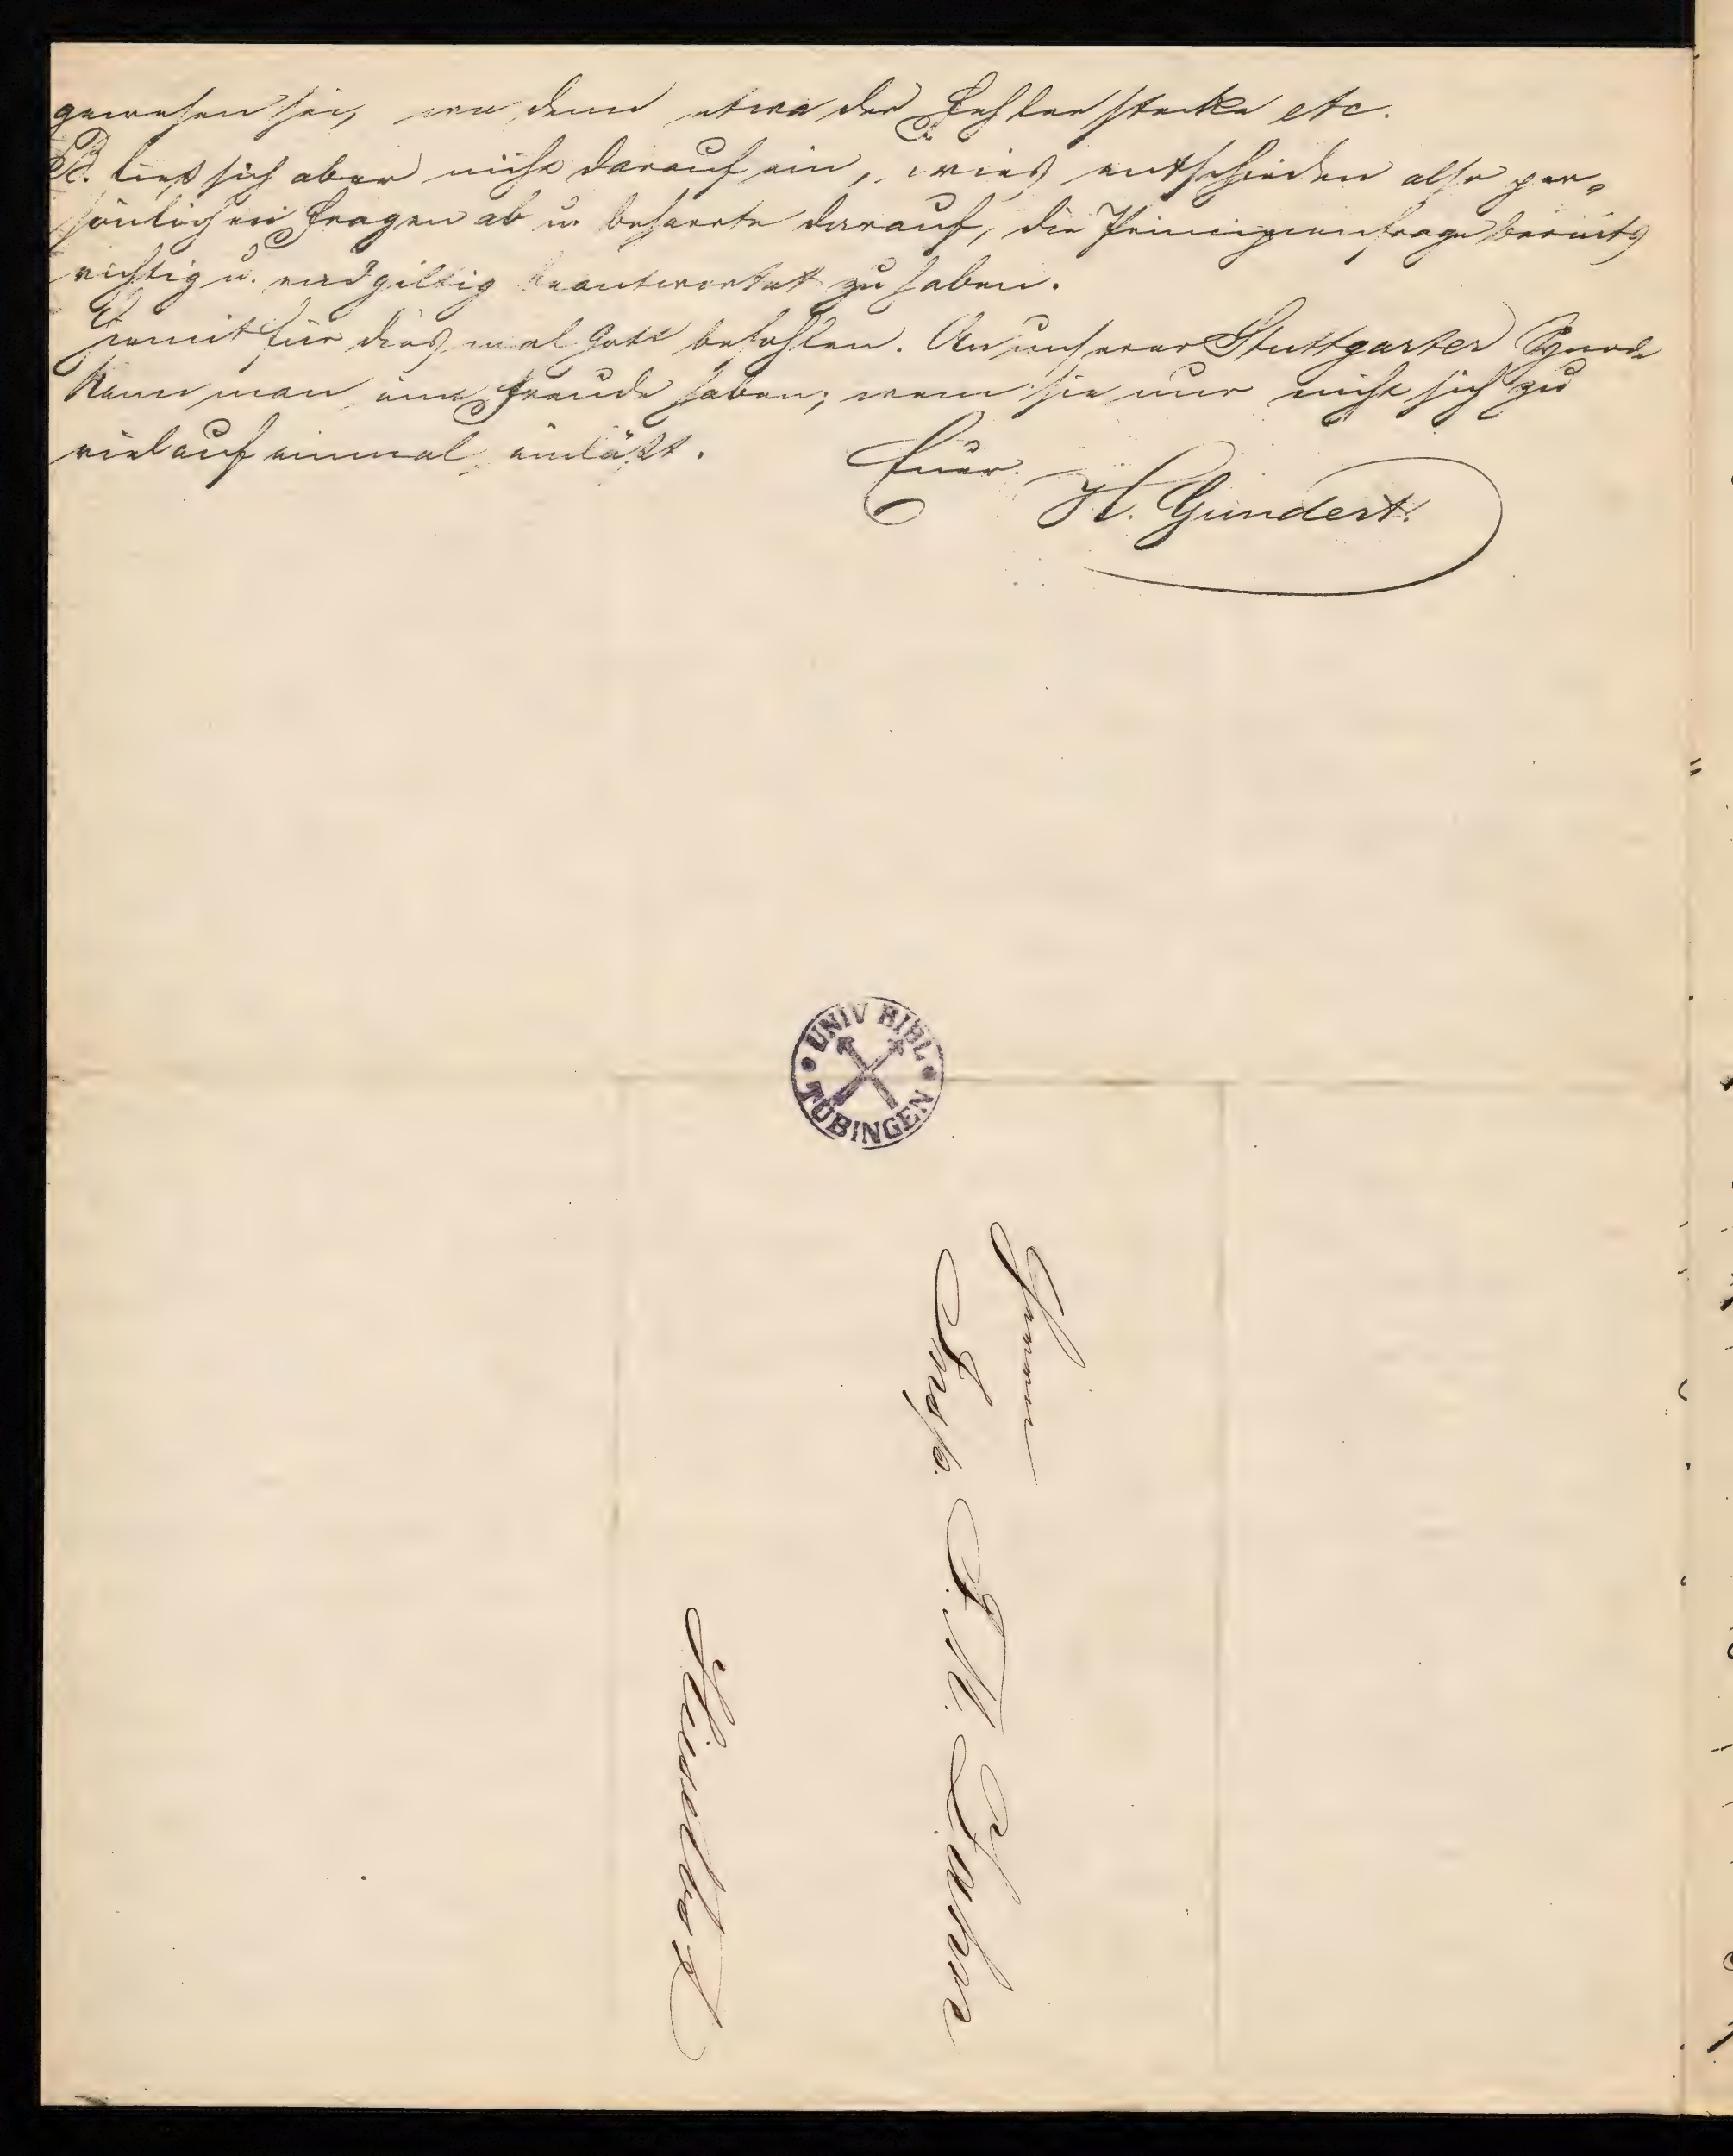 gewesen sei, wo denn etwa der Fehler stecke etc.
B. ließ sich aber nicht darauf ein, wies entschieden alle per-
sönlichen Fragen ab u. beharrte darauf, die Principienfrage bereits
richtig u. endgiltig beantwortet zu haben.
Hiemit für dies mal Gott befohlen. An unserer Stuttgarter Synode
kann man eine Freude haben; wenn sie nur nicht sich zu
viel auf einmal einläßt.
Euer
H. Gundert.
UNIV BIBL
TÜBINGEN
Herrn
Insp.